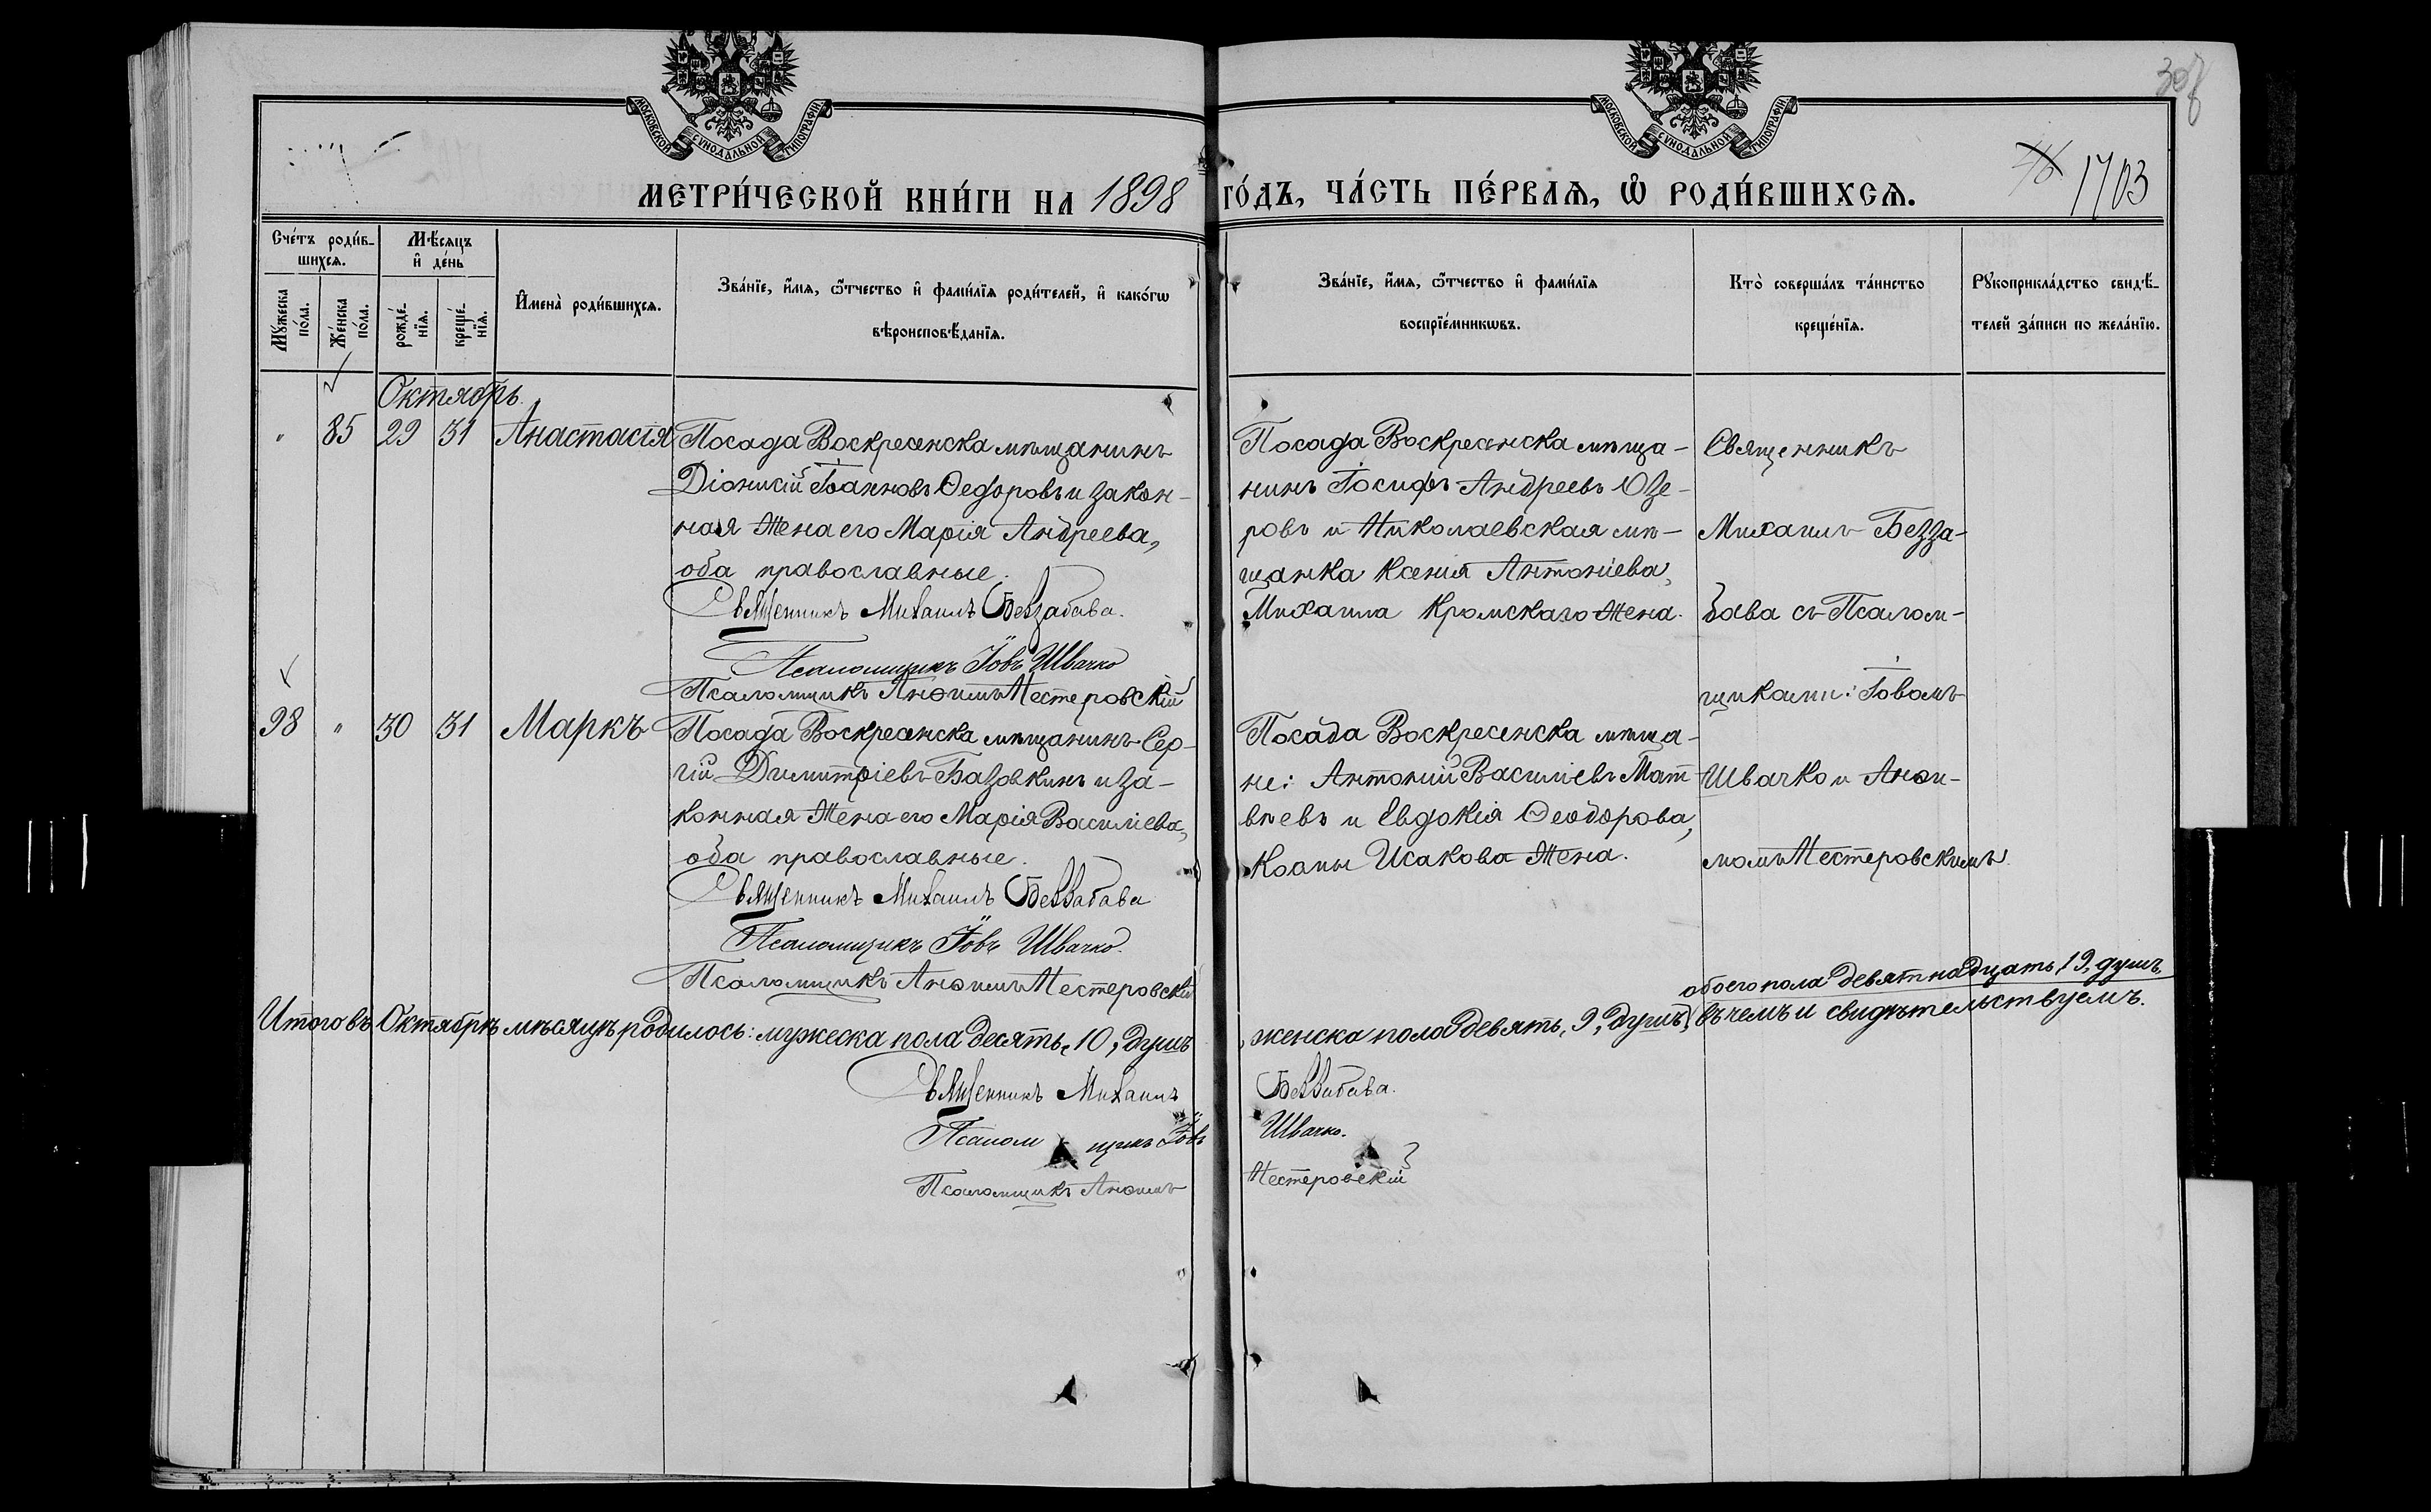 МОСКОВСКОЙ СѴНОДАЛЬНОЙ ТИПОГРАФІИ
МОСКОВСКОЙ СѴНОДАЛЬНОЙ ТИПОГРАФІИ
1703
МЕТРИ́ЧЕСКОЙ КНИ́ГИ НА 1898 ГО́ДЪ, ЧА́СТЬ ПЕ́РВАѦ, Ѡ҆ РОДИ́ВШИХСѦ.
Сче́тъ роди́в-
шихсѧ.
Мꙋ́жеска по́ла.
Же́нска по́ла.
Мѣ́сяцъ
и҆ де́нь
рожде́-нїѧ.
креще́-нїѧ.
И҆мена̀ роди́вшихсѧ.
Зва́нїе, и҆́мѧ, ѻ҆́тчество и҆ фами́лїѧ роди́телей, и҆ како́гѡ
вѣроисповѣ́данїѧ.
Зва́нїе, и҆́мѧ, ѻ҆́тчество и҆ фами́лїѧ
воспрїе́мникѡвъ.
Кто̀ соверша́лъ та́инство
креще́нїѧ.
Рꙋкоприкла́дство свидѣ́-
телей за́писи по жела́нїю.
Октябрь.
" 85 29 31 Анастасія
Посада Воскресенска мѣщанинъ
Діонисій Іоанновъ Ѳедоровъ и закон-
ная жена его Марія Андреева,
оба православные.
Священникъ Михаилъ Беззабава.
Псаломщикъ Іовъ Швачко
Псаломщикъ Анѳимъ Нестеровскій
Посада Воскресенска мѣща-
нинъ Іосифъ Андреевъ Озе-
ровъ и Николаевская мѣ-
щанка Ксенія Антоніева,
Михаила Кромскаго жена.
Священникъ
Михаилъ Безза-
бава съ Псалом-
щиками: Іовомъ
Швачко и Анѳи-
момъ Нестеровскимъ
98 " 30 31 Маркъ
Посада Воскресенска мѣщанинъ Сер-
гій Димитріевъ Базовкинъ и за-
конная жена его Марія Василіева,
оба православные.
Священникъ Михаилъ Беззабава
Псаломщикъ Іовъ Швачко.
Псаломщикъ Анѳимъ Нестеровскій
Посада Воскресенска мѣща-
не: Антоній Василіевъ Мат
вѣевъ и Евдокія Ѳеодорова,
Космы Исакова жена.
Итого въ Октябрѣ мѣсяцѣ родилось: мужеска пола десять, 10, душъ, женска пола девять, 9, душъ,
обоего пола девятнадцать, 19, душъ,
въ чемъ и свидѣтельствуемъ.
Священникъ Михаилъ Беззабава.
Псаломщикъ Іовъ Швачко.
Псаломщикъ Анѳимъ Нестеровскій